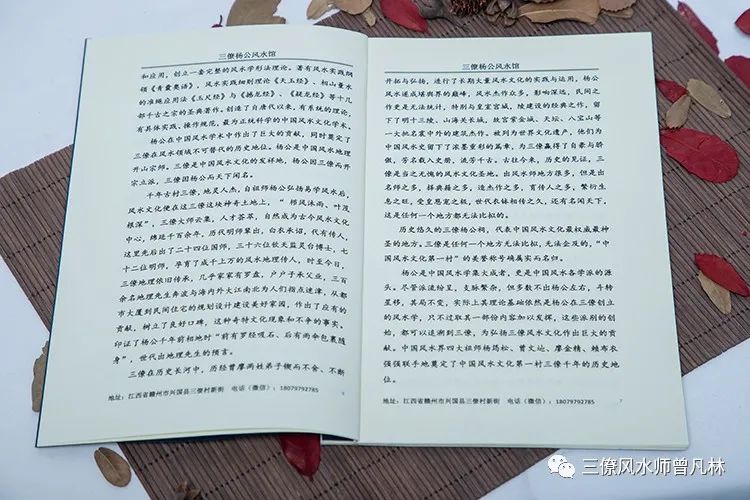 三僚杨公风水馆
和应用，创立一套完整的风水学形法理论。著有风水实践纲
领《青囊奥语》，风水实践细则理论《天玉经》、相山量水
的准绳应用法《玉尺经》与《撼龙经》、《疑龙经》等十几
部千古之宗的圣典著作。创造了自唐代以来，有系统的理论，
有具体实践、操作规范，最为正统科学的中国风水文化学术。
杨公在中国风水学术中作出了巨大的贡献，同时奠定了
三僚在风水领域不可替代的历史地位。杨公是中国风水地理
开山宗师。三僚是中国风水文化的发祥地，杨公因三僚而开
宗立派，三僚因杨公而天下闻名。
千年古村三僚，地灵人杰，自祖师杨公弘扬易学风水后，
风水文化便在这三僚这块神奇土地上，“栉风沐雨、叶茂
根深”，三僚大师云集，人才荟萃，自然成为古今风水文化
中心，绵延千百余年，历代明师辈出，白衣承诏，代有传人，
这里先后出了二十四位国师，三十六位钦天监灵台博士，七
十二位明师，孕育了成千上万的风水地理传人，时至今日，
三僚地理依旧传承，几乎家家有罗盘，户户子承父业，三百
余名地理先生奔波与海内外大江南北为人们指点迷津，从都
市大厦到民间住宅的规划设计建设美好家园，作出了应有的
贡献，树立了良好口碑，这种奇特文化现象和不争的事实。
印证了杨公千年前相地时“前有罗经吸石、后有雨伞包裹随
身”，世代出地理先生的预言。
三僚在历史长河中，历经曾廖两姓弟子锲而不舍、不断
地址：江西省赣州市兴国县三僚村新街 电话（微信）：18079792785
6
三僚杨公风水馆
开拓与弘扬，进行了长期大量风水文化的实践与运用，杨公
风水遂成堪舆界的巅峰，风水杰作众多，影响深远，民间之
作更是无法统计，特别与皇室宫城，陵建设的经典之作，留
下了明十三陵、山海关长城，故宫紫金城、天坛、八宝山等
一大批名案中外的建筑杰作。被列为世界文化遗产，他们为
中国风水史留下了浓墨重彩的篇章，为三僚赢得了自豪与骄
傲，芳名载入史册，流芳千古。古往今来，历史的见证，三
僚是当之无愧的风水文化圣地。出风水师地方很多，但是出
名师之多，择典籍之多、造杰作之多，育传人之多，繁衍生
息之旺，受皇恩宠之极，世代衣钵相传之久，还有名闻天下，
这是任何一个地方都无法比拟的。
历史悠久的三僚杨公祠，代表中国风水文化最权威最神
圣的地方，三僚是任何一个地方无法比拟，无法企及的，“中
国风水文化第一村”的美誉称号确属实而名归。
杨公是中国风水学集大成者，更是中国风水各学派的源
头。尽管派流纷呈，支脉繁杂，但多数不出杨公左右，斗转
星移，其局不变，实际上其理论基础依然是杨公在三僚创立
的风水学，只不过取其一部份内容加以发挥，这些派别的创
始，都可以追溯到三僚，为弘扬三僚风水文化作出巨大的贡
献。中国风水界四大祖师杨筠松、曾文辿、廖金精、赖布衣
强强联手地奠定了中国风水文化第一村三僚千年的历史地
位。
地址：江西省赣州市兴国县三僚村新街 电话（微信）：18079792785
7
三僚风水师曾凡林